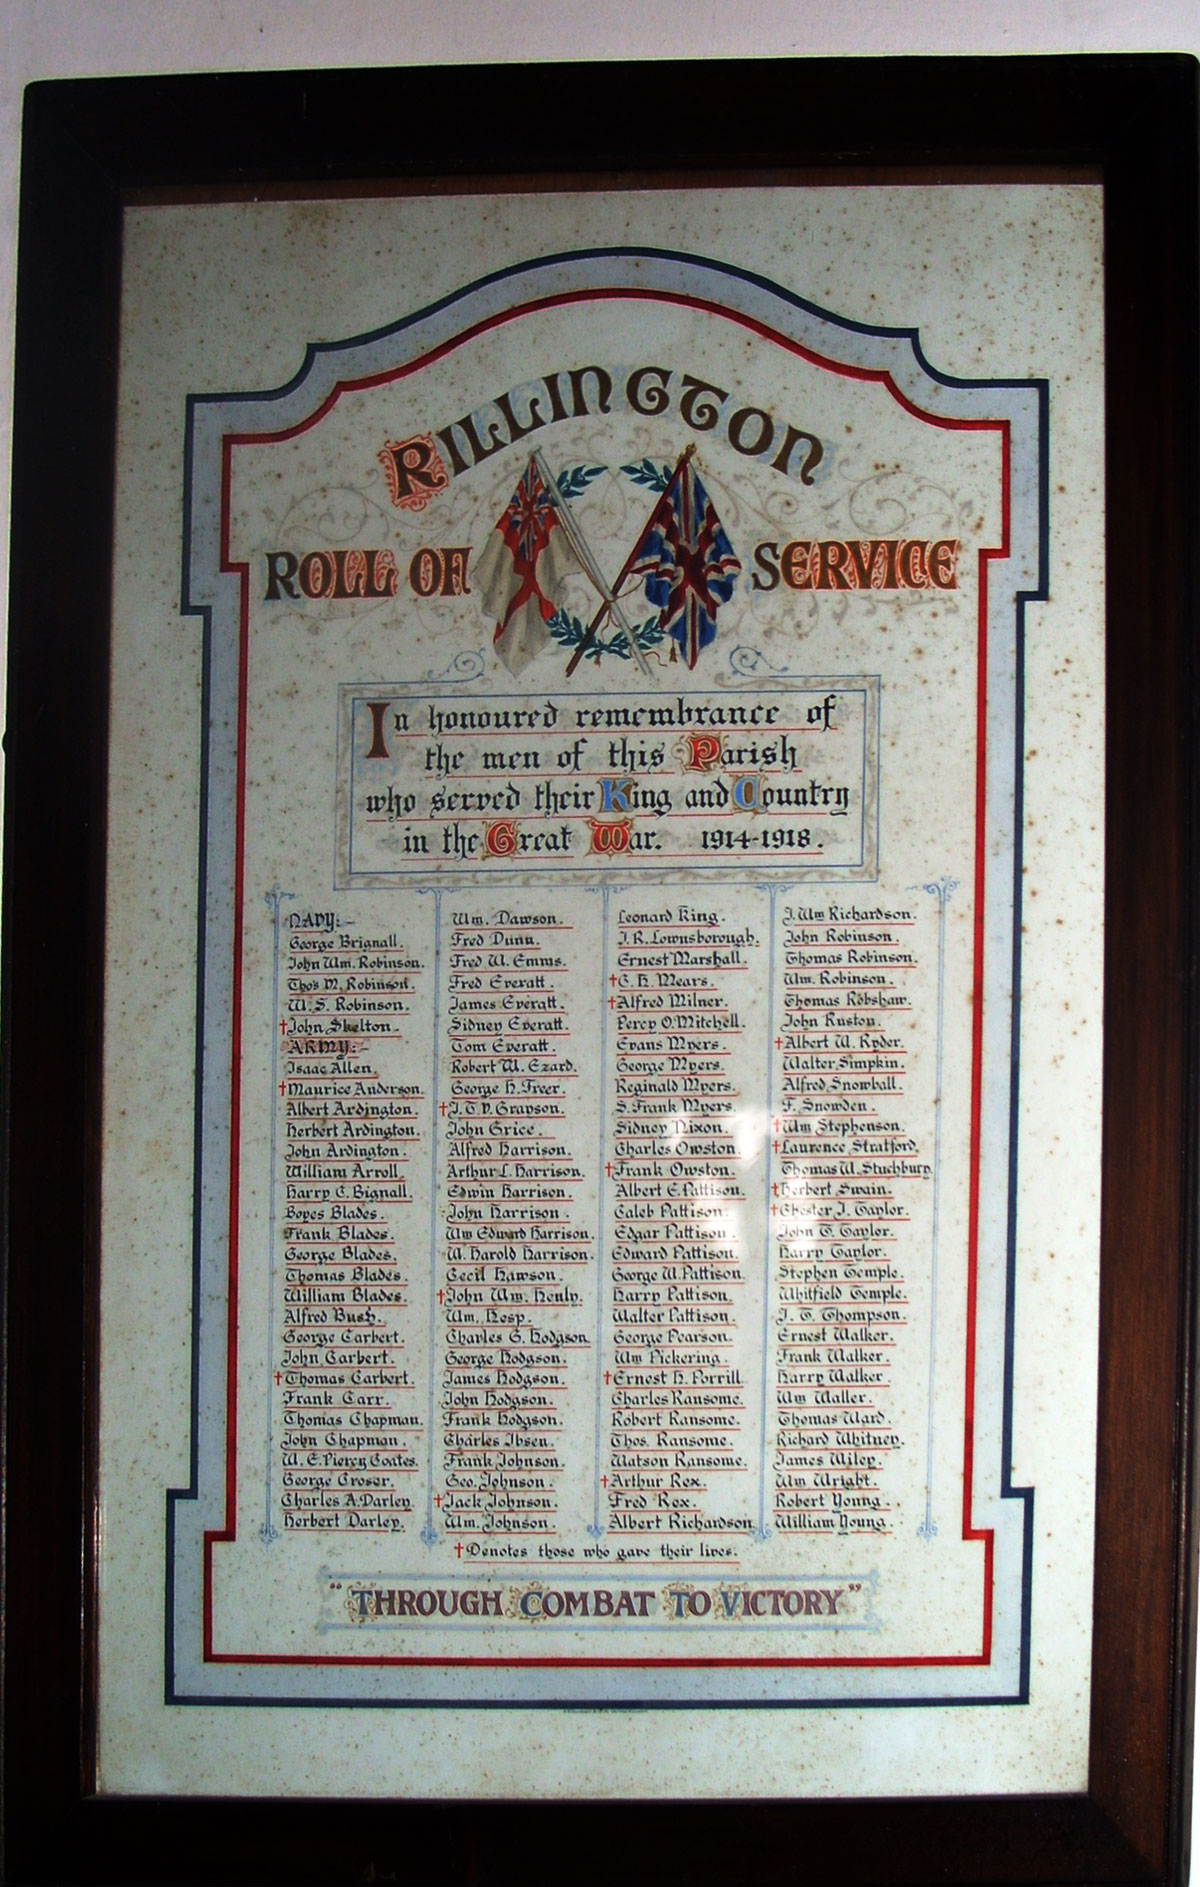 RILLINGTON
ROLL OF SERVICE
In honoured remembrance of
the men of this Parish
who served their King and Country
in the Great War. 1914-1918.
NAVY:-
George Brignall.
John Wm. Robinson.
Thos M. Robinson.
W. S. Robinson.
†John Skelton.
ARMY:-
Isaac Allen.
†Maurice Anderson.
Albert Ardington.
Herbert Ardington.
John Ardington.
William Arroll.
Harry C. Bignall.
Boyes Blades.
Frank Blades.
George Blades.
Thomas Blades.
William Blades.
Alfred Bush.
George Carbert.
John Carbert.
†Thomas Carbert.
Frank Carr.
Thomas Chapman.
John Chapman.
W. E. Piercy Coates.
George Croser.
Charles A. Darley.
Herbert Darley.
Wm. Dawson.
Fred Dunn.
Fred W. Emms.
Fred Everatt.
James Everatt.
Sidney Everatt.
Tom Everatt.
Robert W. Ezard.
George H. Freer.
†J. T. V. Grayson.
John Grice.
Alfred Harrison.
Arthur L. Harrison.
Edwin Harrison.
John Harrison.
Wm Edward Harrison.
W. Harold Harrison.
Cecil Hawson.
†John Wm. Henly.
Wm. Hesp.
Charles G. Hodgson.
George Hodgson.
James Hodgson.
John Hodgson.
Frank Hodgson.
Charles Ibsen.
Frank Johnson.
Geo. Johnson.
†Jack Johnson.
Wm. Johnson.
Leonard King.
J. R. Lownsborough.
Ernest Marshall.
†C. H. Mears.
†Alfred Milner.
Percy O. Mitchell.
Evans Myers.
George Myers.
Reginald Myers.
S. Frank Myers.
Sidney Nixon.
Charles Owston.
†Frank Owston.
Albert E. Pattison.
Caleb Pattison.
Edgar Pattison.
Edward Pattison.
George W. Pattison.
Harry Pattison.
Walter Pattison.
George Pearson.
Wm Pickering.
†Ernest H. Porrill.
Charles Ransome.
Robert Ransome.
Thos. Ransome.
Watson Ransome.
†Arthur Rex.
Fred Rex.
Albert Richardson.
J. Wm Richardson.
John Robinson.
Thomas Robinson.
Wm. Robinson.
Thomas Robshaw.
John Ruston.
†Albert W. Ryder.
Walter Simpkin.
Alfred Snowball.
F. Snowden.
†Wm Stephenson.
†Laurence Stratford.
Thomas W. Stuchbury.
†Herbert Swain.
†Chester J. Taylor.
John T. Taylor.
Harry Taylor.
Stephen Temple.
Whitfield Temple.
J. T. Thompson.
Ernest Walker.
Frank Walker.
Harry Walker.
Wm Waller.
Thomas Ward.
Richard Whitney.
James Wiley.
Wm Wright.
Robert Young.
William Young.
†Denotes those who gave their lives.
"THROUGH COMBAT TO VICTORY"